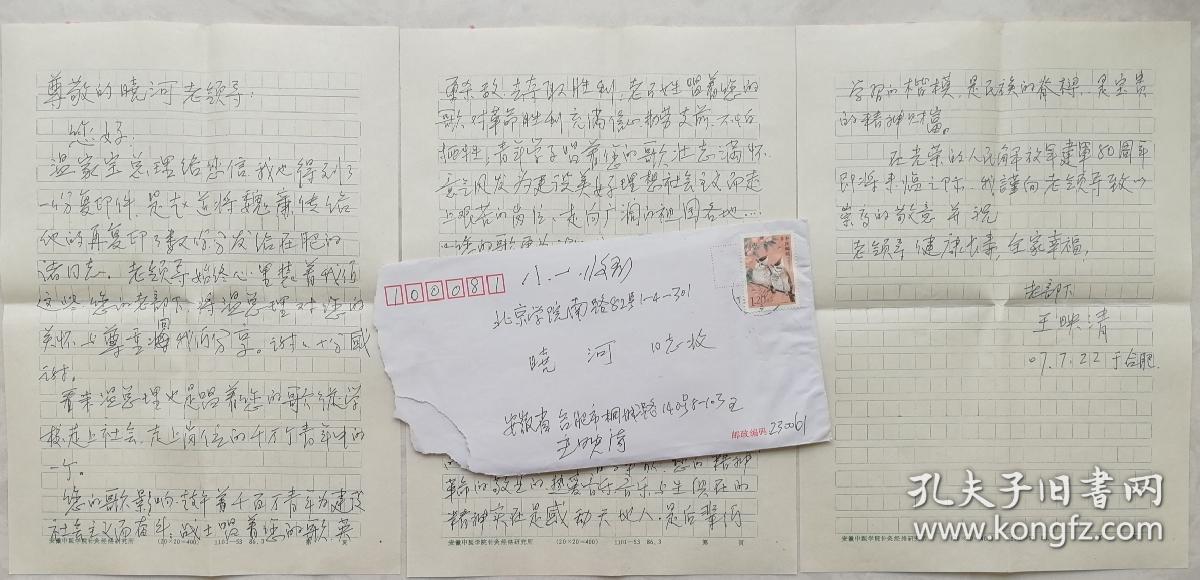 尊敬的晓河老领导：
您好！
温家宝总理给您信我也得到了
一份复印件，是赵道将魏廉传给
他的再复印了数份分发给在肥的
诸同志。老领导始终心里想着我们
这些您的老部下，将温总理对您的
关怀与尊重同我们分享。谢谢，十分感
谢。
看来温总理也是唱着您的歌从学
校走上社会、走上岗位的千万个青年中的
一个。
您的歌影响、鼓舞着千百万青年为建设
社会主义而奋斗。战士唱着您的歌英
勇杀敌去夺取胜利，老百姓唱着您的
歌对革命胜利充满信心，勤劳支前，不怕
牺牲，青年学子唱着您的歌壮志满怀
意气风发为建设美好理想社会主义而走
上艰苦的岗位，走向广阔的祖国各地……
您的精神
革命的敬业的热爱音乐与生俱在的
精神实在是感动天地人，是后辈们
学习的楷模，是民族的脊梁，是宝贵
的精神财富。
在光荣的人民解放军建军80周年
即将来临之际，我谨向老领导致以
崇高的敬意并祝
老领导健康长寿，全家幸福。
老部下
王映清
07.7.22于合肥
安徽中医学院针灸经络研究所 (20×20=400) 1101-53 86.3 第 页
安徽中医学院针灸经络研究所 (20×20=400) 1101-53 86.3 第 页
安徽中医学院针灸经络研究所 (20×20=400) 1101-53 86.3
100081
北京学院南路82号1-4-301
晓河 同志收
安徽省合肥市桐城路140号8-103王
王映清
邮政编码 230061
孔夫子旧书网
www.kongfz.com